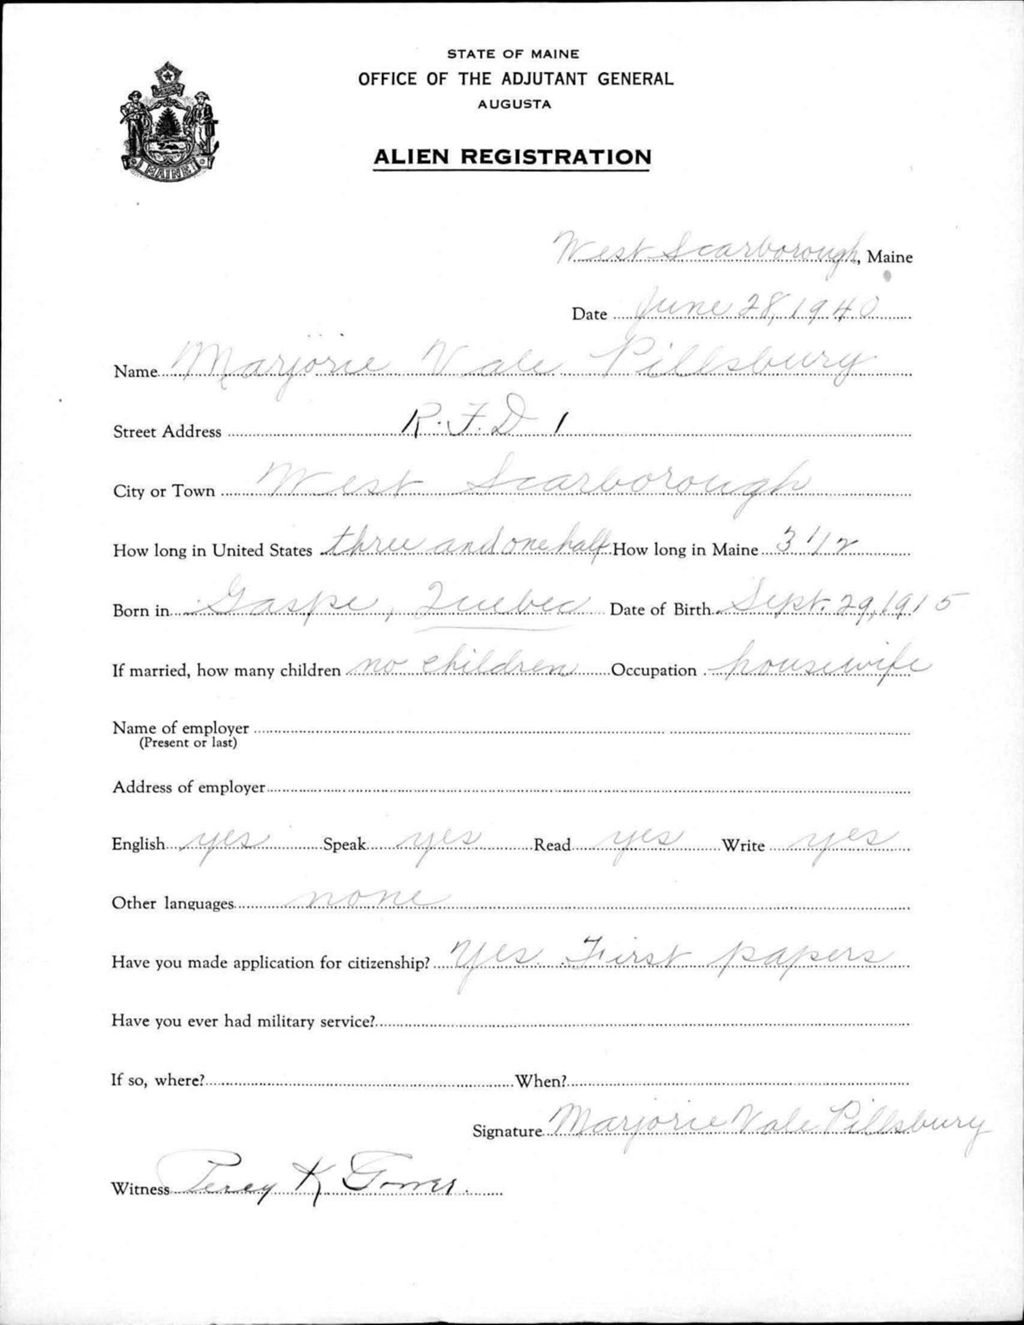 STATE OF MAINE
OFFICE OF THE ADJUTANT GENERAL
AUGUSTA
ALIEN REGISTRATION
MAINE
West Scarborough, Maine
Date June 28, 1940
Name Marjorie Vale Pillsbury
Street Address R.F.D 1
City or Town West Scarborough
How long in United States three and one half How long in Maine 3 1/2
Born in Gaspe, Quebec Date of Birth Sept. 29, 1915
If married, how many children no children Occupation housewife
Name of employer
(Present or last)
Address of employer
English yes Speak yes Read yes Write yes
Other languages none
Have you made application for citizenship? Yes. First papers
Have you ever had military service?
If so, where? When?
Signature Marjorie Vale Pillsbury
Witness Percy K